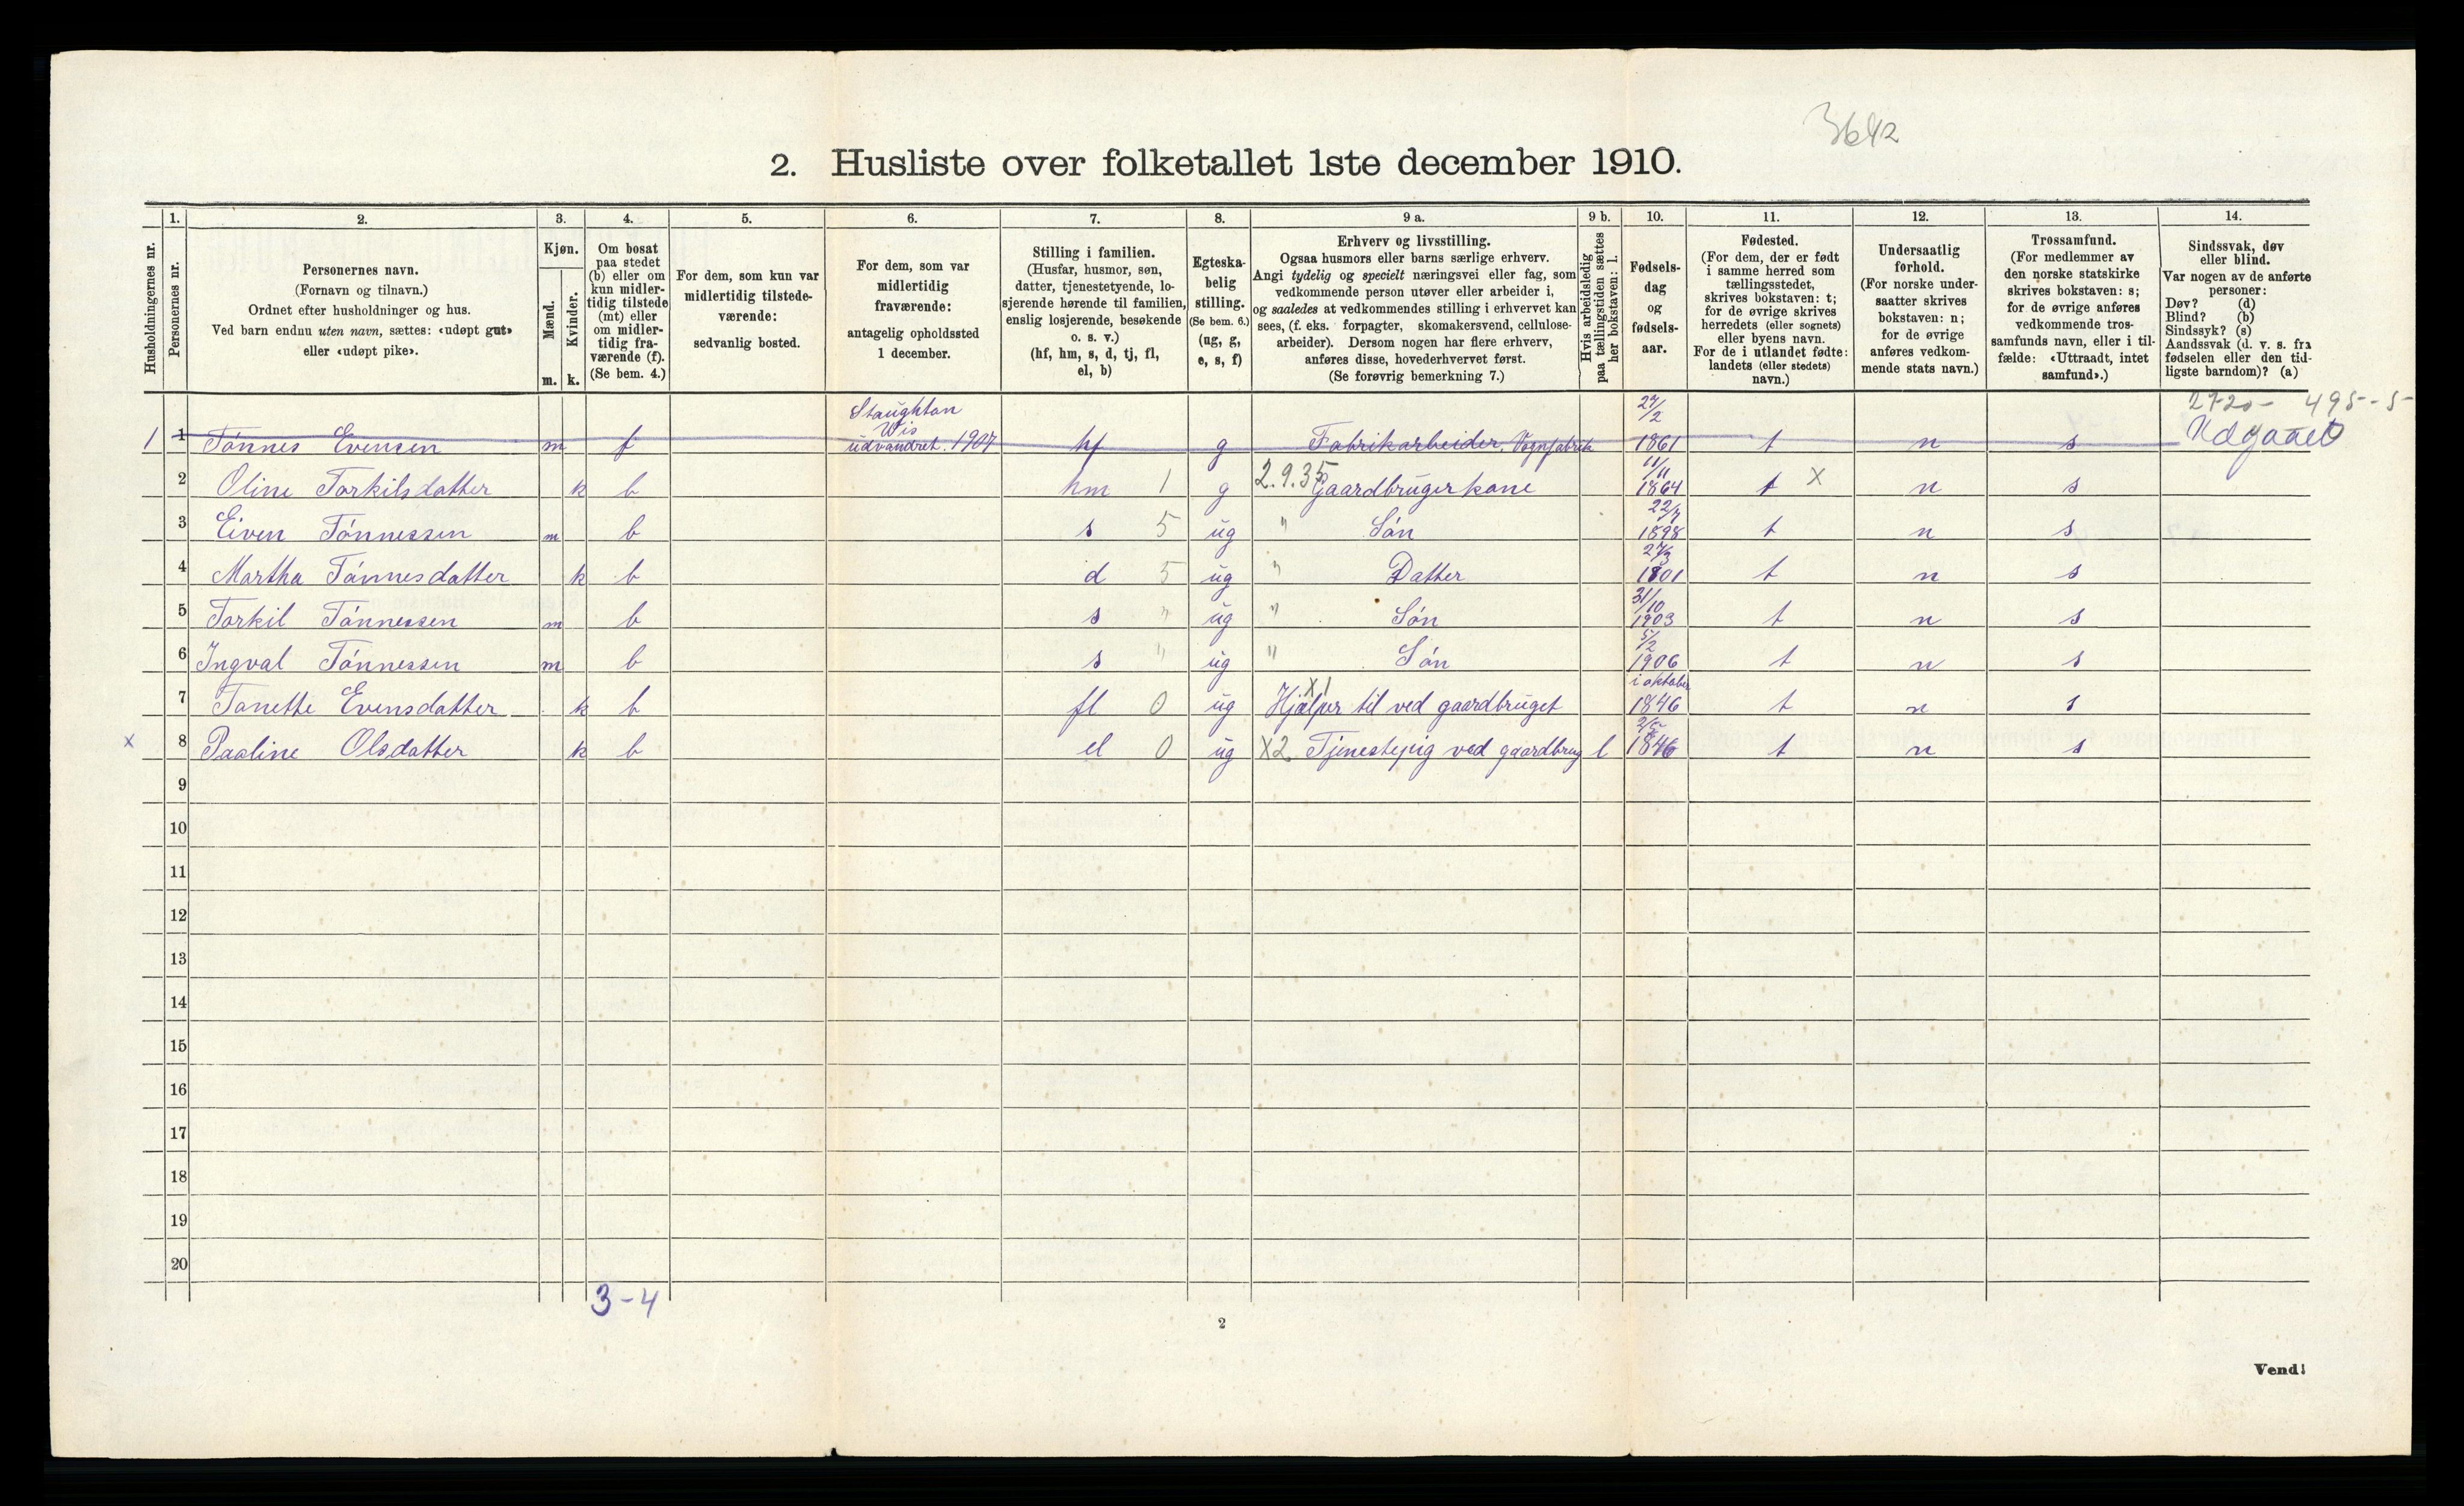 3642
2. Husliste over folketallet 1ste december 1910.
1. 2. 3. 4. 5. 6. 7. 8. 9 a. 9 b. 10. 11. 12. 13. 14.
Husholdningernes nr.
Personernes nr.
Personernes navn.
(Fornavn og tilnavn.)
Ordnet efter husholdninger og hus.
Ved barn endnu uten navn, sættes: «udøpt gut»
eller «udøpt pike».
Kjøn.
Mænd.
Kvinder.
m. k.
Om bosat
paa stedet
(b) eller om
kun midler-
tidig tilstede
(mt) eller
om midler-
tidig fra-
værende (f).
(Se bem. 4.)
For dem, som kun var
midlertidig tilstede-
værende:
sedvanlig bosted.
For dem, som var
midlertidig
fraværende:
antagelig opholdssted
1 december.
Stilling i familien.
(Husfar, husmor, søn,
datter, tjenestetyende, lo-
sjerende hørende til familien,
enslig losjerende, besøkende
o. s. v.)
(hf, hm, s, d, tj, fl,
el, b)
Egteska-
belig
stilling.
(Se bem. 6.)
(ug, g,
e, s, f)
Erhverv og livsstilling.
Ogsaa husmors eller barns særlige erhverv.
Angi tydelig og specielt næringsvei eller fag, som
vedkommende person utøver eller arbeider i,
og saaledes at vedkommendes stilling i erhvervet kan
sees, (f. eks. forpagter, skomakersvend, cellulose-
arbeider). Dersom nogen har flere erhverv,
anføres disse, hovederhvervet først.
(Se forøvrig bemerkning 7.)
Hvis arbeidsledig
paa tællingstiden sættes
her bokstaven: l.
Fødsels-
dag
og
fødsels-
aar.
Fødested.
(For dem, der er født
i samme herred som
tællingsstedet,
skrives bokstaven: t;
for de øvrige skrives
herredets (eller sognets)
eller byens navn.
For de i utlandet fødte:
landets (eller stedets)
navn.)
Undersaatlig
forhold.
(For norske under-
saatter skrives
bokstaven: n;
for de øvrige
anføres vedkom-
mende stats navn.)
Trossamfund.
(For medlemmer av
den norske statskirke
skrives bokstaven: s;
for de øvrige anføres
vedkommende tros-
samfunds navn, eller i til-
fælde: «Uttraadt, intet
samfund».)
Sindssvak, døv
eller blind.
Var nogen av de anførte
personer:
Døv? (d)
Blind? (b)
Sindssyk? (s)
Aandssvak (d. v. s. fra
fødselen eller den tid-
ligste barndom)? (a)
Staughton
Wis
27/2
1 1 Tønnes Evensen m f udvandret. 1907 hf g Fabrikarbeider, Vognfabrik 1861 t n s Udgaaet
11/11
2 Oline Torkilsdatter k b hm 1 g 2.9.35 Gaardbrugerkone 1864 t x n s
3 Eiven Tönnessen m b s 5 ug " Søn 1898 t n s
4 Martha Tönnesdatter k b d 5 ug " Datter 1801 t n s
31/10
5 Torkil Tönnessen m b s " ug " Søn 1903 t n s
5/2
6 Ingval Tönnessen m b s " ug " Søn 1906 t n s
i oktober
7 Tonette Evensdatter k b fl 0 ug x1 Hjælper til ved gaardbruget 1846 t n s
x 8 Paaline Olsdatter k b el 0 ug x2 Tjenestepig ved gaardbrug l 1846 t n s
9
10
11
12
13
14
15
16
17
18
19
20
3-4
2
Vend!